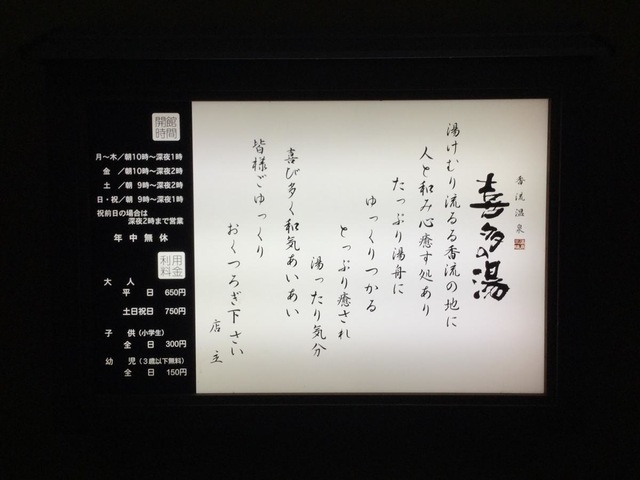 香流温泉
喜多の湯
湯けむり流るる香流の地に
人と和み心癒す処あり
たっぷり湯舟に
ゆっくりつかる
とっぷり癒され
湯ったり気分
喜び多く和気あいあい
皆様ごゆっくり
おくつろぎ下さい
店主
開館時間
月〜木／朝10時〜深夜1時
金／朝10時〜深夜2時
土／朝9時〜深夜2時
日・祝／朝9時〜深夜1時
祝前日の場合は
深夜2時まで営業
年中無休
利用料金
大人
平日 650円
土日祝日 750円
子供（小学生）
全日 300円
幼児（3歳以下無料）
全日 150円